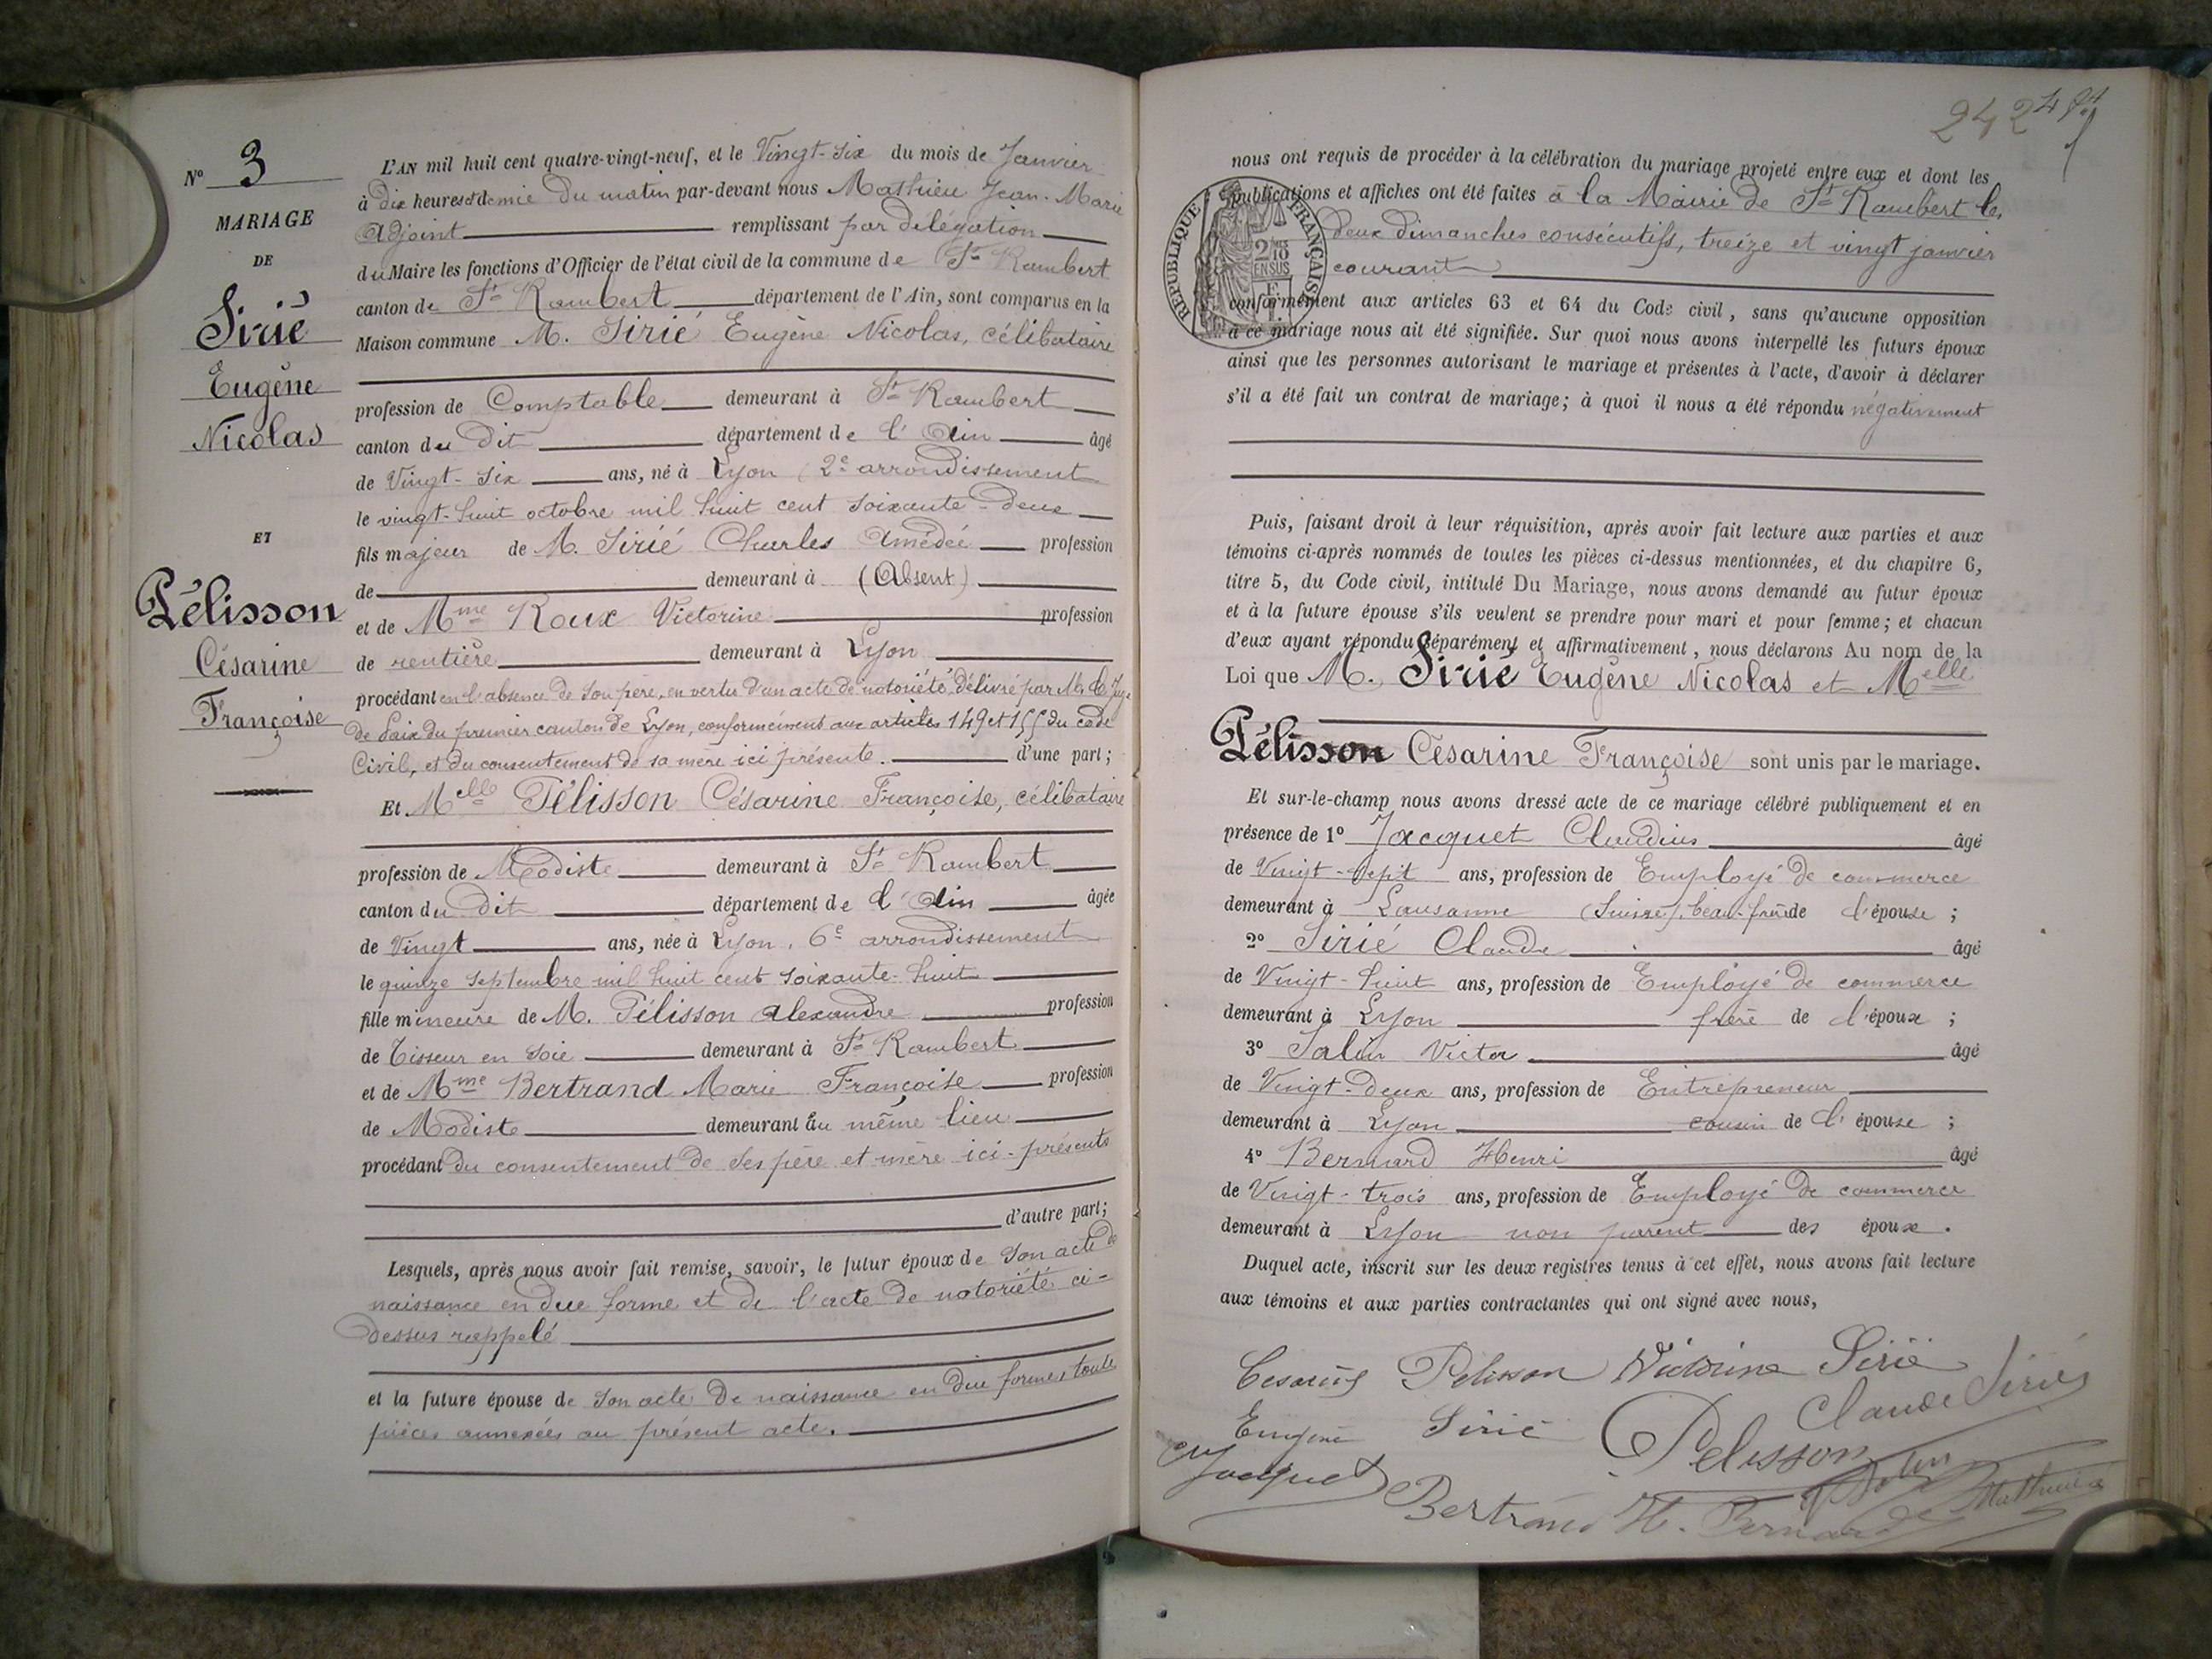 N° 3
MARIAGE
DE
Sirié
Eugène
Nicolas
ET
Pélisson
Césarine
Françoise
L'AN mil huit cent quatre-vingt-neuf, et le Vingt-six du mois de Janvier
à dix heures et demie du matin par-devant nous Mathieu Jean-Marie
Adjoint remplissant par délégation
du Maire les fonctions d'Officier de l'état civil de la commune de St Rambert
canton de St Rambert département de l'Ain, sont comparus en la
Maison commune M. Sirié Eugène Nicolas, célibataire
profession de Comptable demeurant à St Rambert
canton du dit département de l'Ain âgé
de Vingt-six ans, né à Lyon (2e arrondissement
le vingt-huit octobre mil huit cent soixante-deux
fils majeur de M. Sirié Charles Amédée profession
de demeurant à (Absent)
et de Mme Roux Victorine profession
de rentière demeurant à Lyon
procédant en l'absence de son père, en vertu d'un acte de notoriété, délivré par M. le Juge
de Paix du premier canton de Lyon, conformément aux articles 149 et 155 du code
Civil, et du consentement de sa mère ici présente. d'une part;
Et Melle Pélisson Césarine Françoise, célibataire
profession de Modiste demeurant à St Rambert
canton du dit département de l'Ain âgée
de Vingt ans, née à Lyon, 6e arrondissement
le quinze septembre mil huit cent soixante-huit
fille mineure de M. Pélisson Alexandre profession
de Tisseur en soie demeurant à St Rambert
et de Mme Bertrand Marie Françoise profession
de Modiste demeurant au même lieu
procédant du consentement de ses père et mère ici-présents
d'autre part;
Lesquels, après nous avoir fait remise, savoir, le futur époux de son acte de
naissance en due forme et de l'acte de notoriété ci-
dessus rappelé
et la future épouse de son acte de naissance en due forme, toute
pièces annexées au présent acte.
242
nous ont requis de procéder à la célébration du mariage projeté entre eux et dont les
publications et affiches ont été faites à la Mairie de St Rambert le,
deux dimanches consécutifs, treize et vingt janvier
courant
RÉPUBLIQUE FRANÇAISE
2/10
EN SUS
conformément aux articles 63 et 64 du Code civil, sans qu'aucune opposition
à ce mariage nous ait été signifiée. Sur quoi nous avons interpellé les futurs époux
ainsi que les personnes autorisant le mariage et présentes à l'acte, d'avoir à déclarer
s'il a été fait un contrat de mariage; à quoi il nous a été répondu négativement
Puis, faisant droit à leur réquisition, après avoir fait lecture aux parties et aux
témoins ci-après nommés de toutes les pièces ci-dessus mentionnées, et du chapitre 6,
titre 5, du Code civil, intitulé Du Mariage, nous avons demandé au futur époux
et à la future épouse s'ils veulent se prendre pour mari et pour femme; et chacun
d'eux ayant répondu séparément et affirmativement, nous déclarons Au nom de la
Loi que M. Sirié Eugène Nicolas et Melle
Pélisson Césarine Françoise sont unis par le mariage.
Et sur-le-champ nous avons dressé acte de ce mariage célébré publiquement et en
présence de 1° Jacquet Claudius âgé
de Vingt-sept ans, profession de Employé de commerce
demeurant à Lausanne (Suisse), beau-frère de l'épouse;
2° Sirié Claude âgé
de Vingt-huit ans, profession de Employé de commerce
demeurant à Lyon frère de l'époux;
3° Salin Victor âgé
de Vingt-deux ans, profession de Entrepreneur
demeurant à Lyon cousin de l'épouse;
4° Bernard Henri âgé
de Vingt-trois ans, profession de Employé de commerce
demeurant à Lyon non parent des époux.
Duquel acte, inscrit sur les deux registres tenus à cet effet, nous avons fait lecture
aux témoins et aux parties contractantes qui ont signé avec nous,
Pelisson Victorine Sirié
Claude Sirié
Eugène Sirié
Pelisson
Jacquet
Bertrand H. Bernard Mathieu